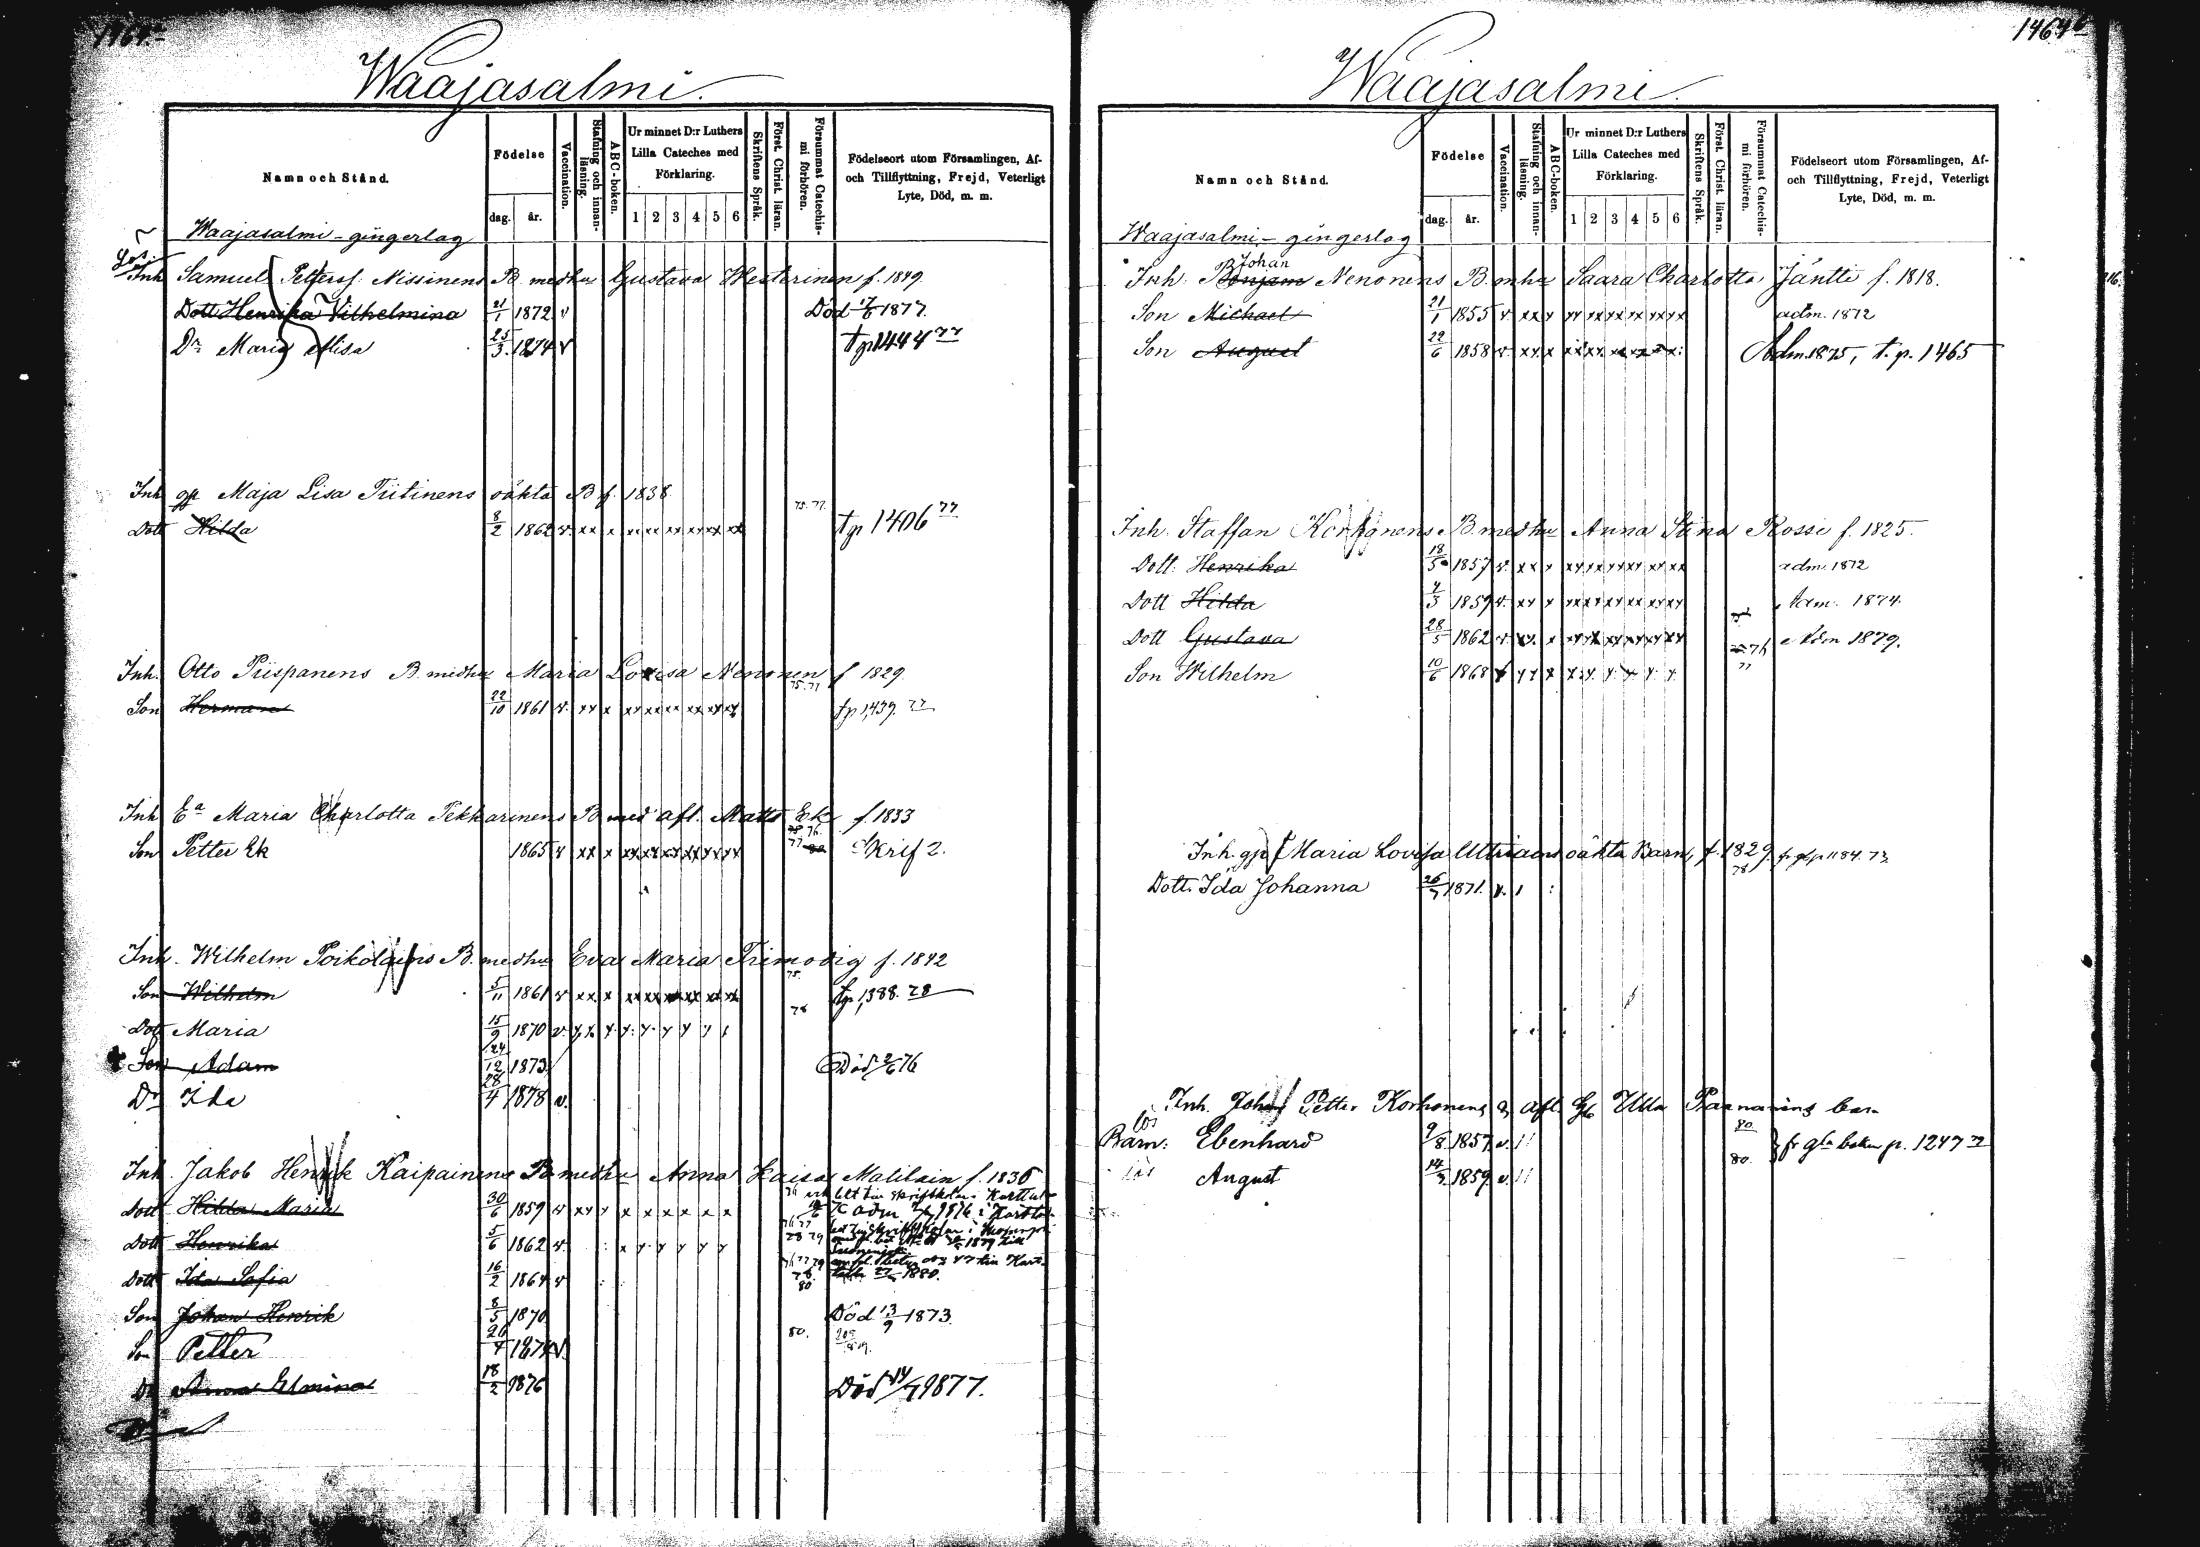 Waajasalmi.
Namn och Stånd.
Födelse
dag.
år.
Vaccination.
Stafning och innanläsning.
ABC-boken.
Ur minnet D:r Luthers Lilla Cateches med Förklaring.
1 2 3 4 5 6
Skriftens Språk.
Först. Christ. läran.
Försummat Catechismi förhören.
Födelseort utom Församlingen, Af- och Tillflyttning, Frejd, Veterligt Lyte, Död, m. m.
Waajasalmi - gingerlag
Inh Samuel Petterss. Nissinens B. medhu Gustava Westerinen f. 1849.
Dott Henrika Vilhelmina 21/1 1872 v Död 1877.
Dr Maria Alisa 25/3 1874 v tp 1444 77
Inh gp Maja Lisa Tiitinens oäkta B f. 1838
75. 77.
Dott Hilda 8/2 1862 v. xx x xx xx xx xx xx xx tp 1406 77
Inh. Otto Piispanens B. medhu Maria Lovisa Nenonen f 1829
75. 77
Son Herman 22/10 1861 v. xx x xx xx xx xx xx xx tp 1439. 77
Inh Ea Maria Charlotta Pekkarinens B med afl. Matts Ek f. 1833
Son Petter Ek 1865 v xx x xx xx xx xx xx xx Skrif 2.
Inh. Wilhelm Poikolainens B. medhu Eva Maria Frimodig f. 1842
75.
Son Wilhelm 5/11 1861 v xx x xx xx xx xx xx xx tp 1388. 78
78
Dott Maria 15/9 1870 v.
Son Adam 24/12 1873 Död 2/6 76
Dr Ida 28/4 1878 v.
Inh. Jakob Henrik Kaipainens B medhu Anna Kaisa Matilain f. 1836
Dott Hilda Maria 30/6 1859 v xx x x x x x x x
Dott Henrika 5/6 1862 v.
Dott Ida Sofia 16/2 1864 v 1880.
Son Johan Henrik 8/5 1870 Död 13/9 1873.
Son Petter 26/4 1874 v. 80.
Dr Anna Elmina 18/2 1876 Död 14/7 1877.
1464
Waajasalmi.
Namn och Stånd.
Födelse
dag.
år.
Vaccination.
Stafning och innanläsning.
ABC-boken.
Ur minnet D:r Luthers Lilla Cateches med Förklaring.
1 2 3 4 5 6
Skriftens Språk.
Först. Christ. läran.
Försummat Catechismi förhören.
Födelseort utom Församlingen, Af- och Tillflyttning, Frejd, Veterligt Lyte, Död, m. m.
Waajasalmi - gingerlag
Johan
Inh. Benjam Nenonens B. mhu Saara Charlotta Jäntti f. 1818.
Son Michael 21/1 1855 v. xx x xx xx xx xx xx xx adm. 1872
Son August 22/6 1858 v. xx x xx xx xx xx xx xx Adm. 1875, t. p. 1465
Inh. Staffan Korhonens B. medhu Anna Stina Rossi f. 1825.
Dott. Henrika 18/5 1857 v. xx x xx xx xx xx xx xx adm. 1872
Dott Hilda 4/3 1859 v. xx x xx xx xx xx xx xx Adm. 1874.
Dott Gustava 28/5 1862 v. xx x xx xx xx xx xx xx Adm 1879.
Son Wilhelm 10/6 1868
Inh. gp Maria Lovisa Utriains oäkta Barn, f. 1829 fr gb p 1184. 73
78
Dott. Ida Johanna 26/7 1871. v.
Inh. Johan Petter Korhonens & afl. Ulla Parnanens bar.
lös
Barn: Ebenhard 9/8 1857 v. 80. fr gla boken p. 1247
lös August 14/7 1859 v. 80.